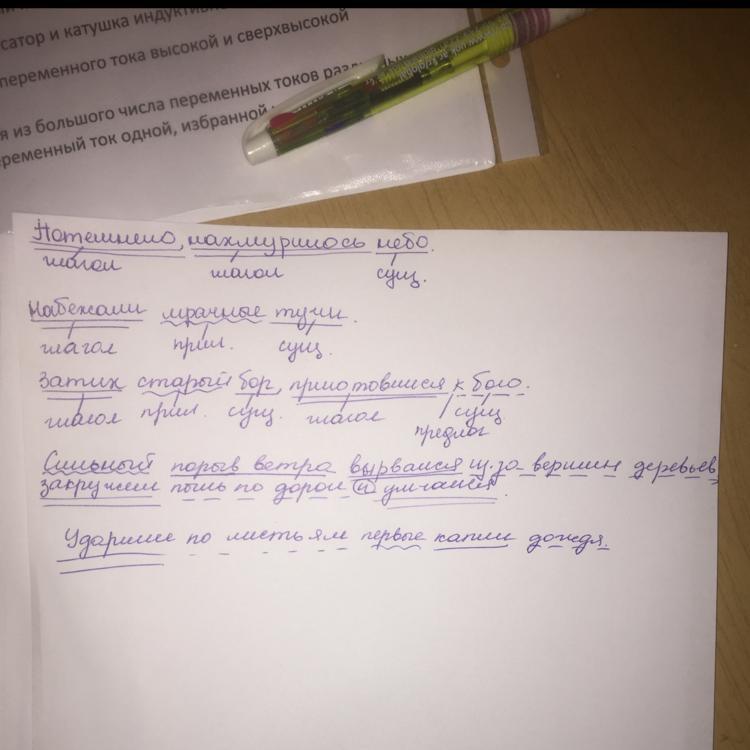 сатор и катушка индуктивно
переменного тока высокой и сверхвысокой
я из большого числа переменных токов разл
еременный ток одной, избранной
Потемнело, нахмурилось небо.
глагол глагол сущ.
Набежали мрачные тучи.
глагол прил. сущ.
Затих старый бор, приготовившись к бою.
глагол прил. сущ. глагол предлог сущ
Сильный порыв ветра вырвался из-за вершин деревьев,
закружил пыль по дороге и умчался.
Ударили по листьям первые капли дождя.